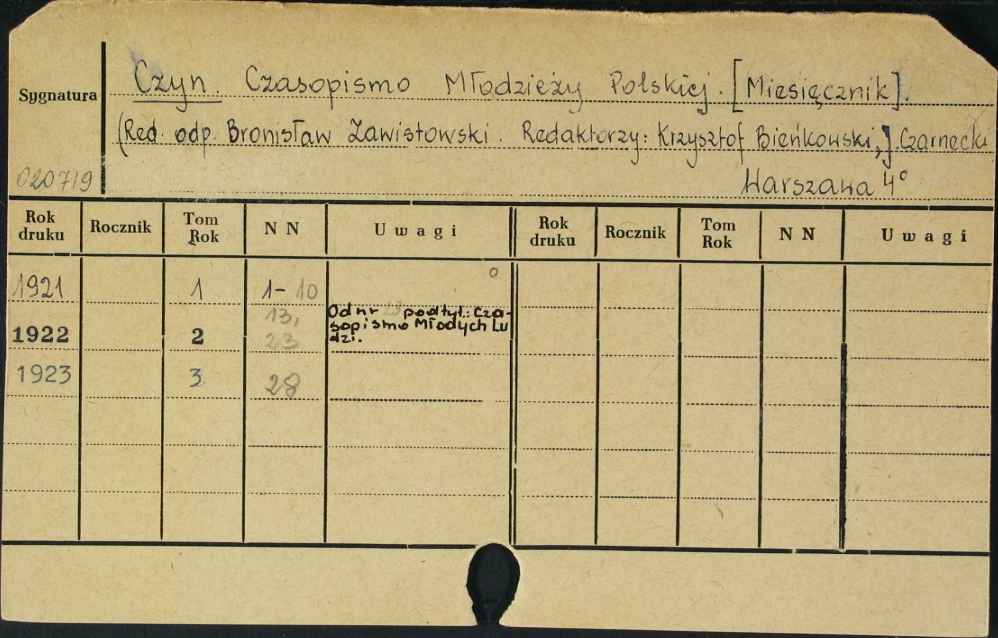 Czyn. Czasopismo Młodzieży Polskiej. [Miesięcznik].
Sygnatura
(Red. odp. Bronisław Zawistowski. Redaktorzy: Krzysztof Bieńkowski,] Czarnecki
020719 Warszawa 4°
Rok druku Rocznik Tom Rok N N Uwagi Rok druku Rocznik Tom Rok N N Uwagi
1921 1 1-10
1922 2 13, 23 Od nr 13 podtyt.: Cza-
sopismo Młodych Lu
dzi.
1923 3 28